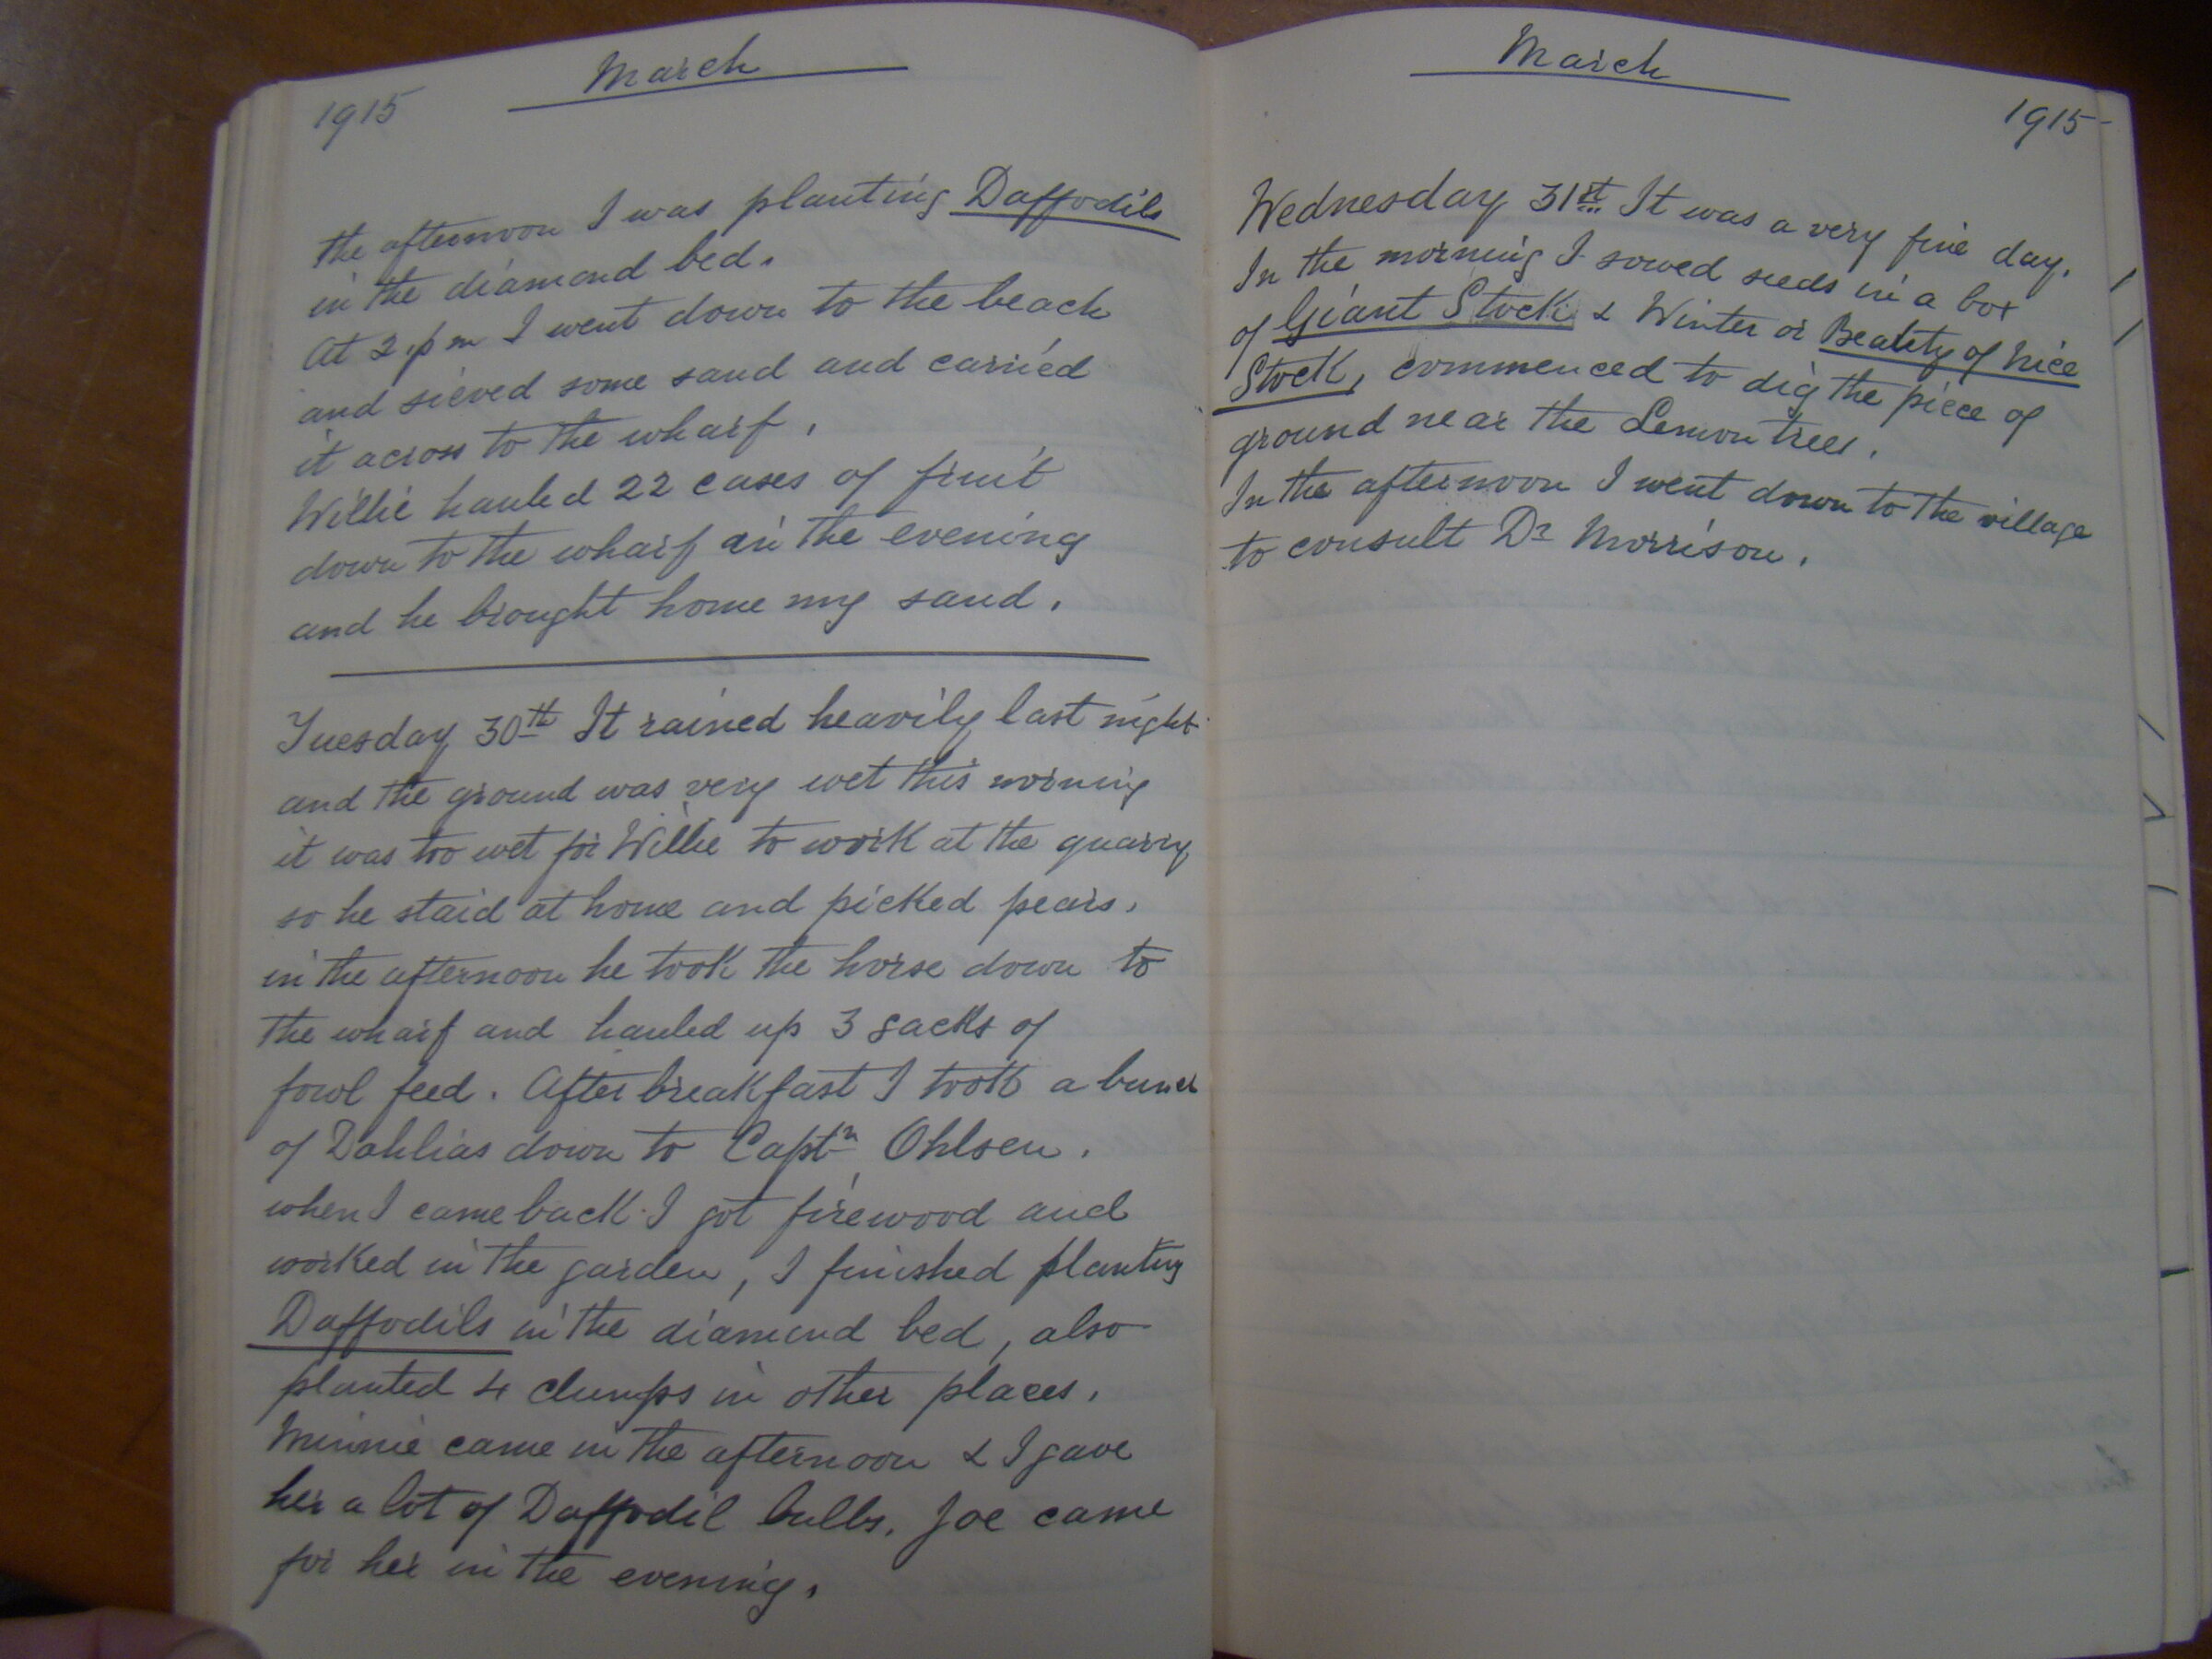 March
1915
the afternoon I was planting Daffodils
in the diamond bed.
At 2.pm I went down to the beach
and sieved some sand and carried
it across to the wharf.
Willie hauled 22 cases of fruit
down to the wharf in the evening
and he brought home my sand.
Tuesday 30th It rained heavily last night
and the ground was very wet this morning
it was too wet for Willie to work at the quarry
so he staid at home and picked pears.
in the afternoon he took the horse down to
the wharf and hauled up 3 sacks of
fowl feed. After breakfast I took a bunch
of Dahlias down to Captn Ohlsen.
when I came back I got firewood and
worked in the garden, I finished planting
Daffodils in the diamond bed, also
planted 4 clumps in other places.
Minnie came in the afternoon & I gave
her a lot of Daffodil bulbs. Joe came
for her in the evening.
March
1915-
Wednesday 31st It was a very fine day.
In the morning I sowed seeds in a box
of Giant Stock & Winter or Beauty of Nice
Stock, commenced to dig the piece of
ground near the Lemon trees.
In the afternoon I went down to the village
to consult Dr Morrison.